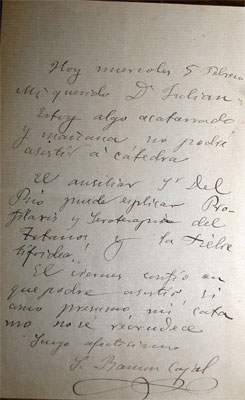 Hoy miercoles 5 Febrero
Mi querido Dr Julian:
Estoy algo acatarrado
y mañana no podré
asistir á cátedra
El auxiliar Sr Del
Rio puede explicar Pro-
filaxis y Seroterapia del
Tetanos y la Fiebre
tifoidea.
El viernes confio en
que podre asistir si
como presumo mi cata
rro no se recrudece
Suyo afectisimo
S. Ramon Cajal